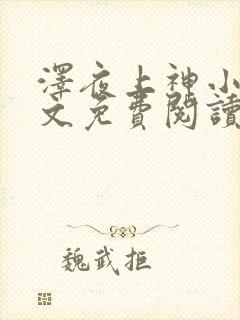 澤夜上神小
文免費閱讀
魏武拒